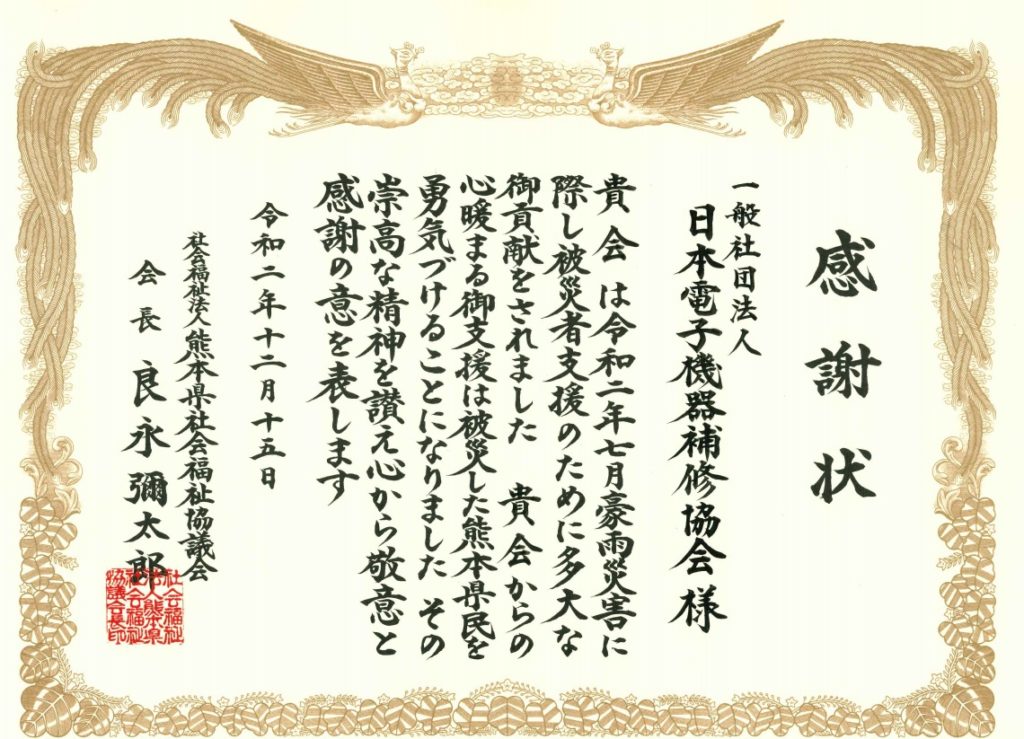 感謝状
一般社団法人
日本電子機器補修協会様
貴会は令和二年七月豪雨災害に
際し被災者支援のために多大な
御貢献をされました 貴会からの
心暖まる御支援は被災した熊本県民を
勇気づけることになりました その
崇高な精神を讃え心から敬意と
感謝の意を表します
令和二年十二月十五日
社会福祉法人熊本県社会福祉協議会
会長 良永彌太郎
社会福祉
法人熊本県
社会福祉
協議会長印